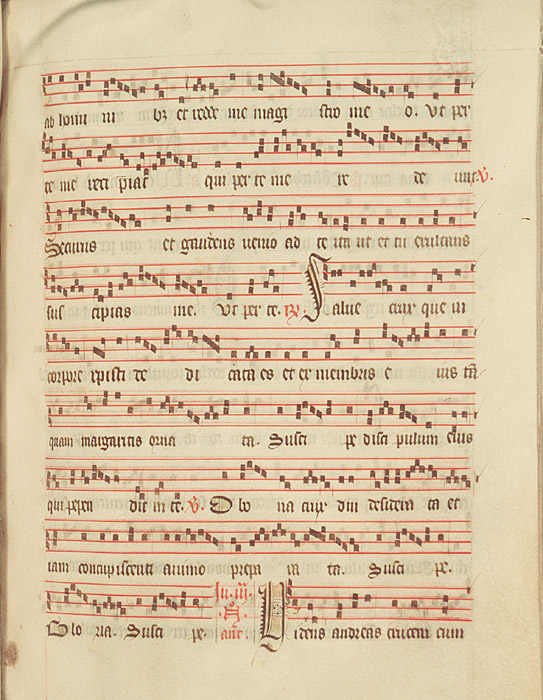 ab homi ni bꝫ et redde me magi stro me o. Ut per
te me reci piat qui per te me re de mit ℣.
Securus et gaudens uenio ad te ita ut et tu exultans
sus cipias me. Ut per te. ℟. Salue crux que in
corpore xpisti de di cata es et ex membris e ius tā
quam margaritis orna ta. Susci pe disci pulum eius
qui pepen dit in te. ℣. O bo na crux diu desidera ta et
iam concupiscenti animo prepa ra ta. Susci pe.
Glo ria. Susci pe. añ Uidens andreas crucem cum